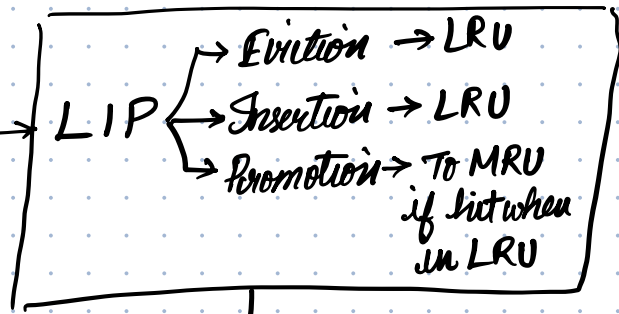 Evition → LRU
LIP Insertion → LRU
Promotion → To MRU
if hit when
in LRU